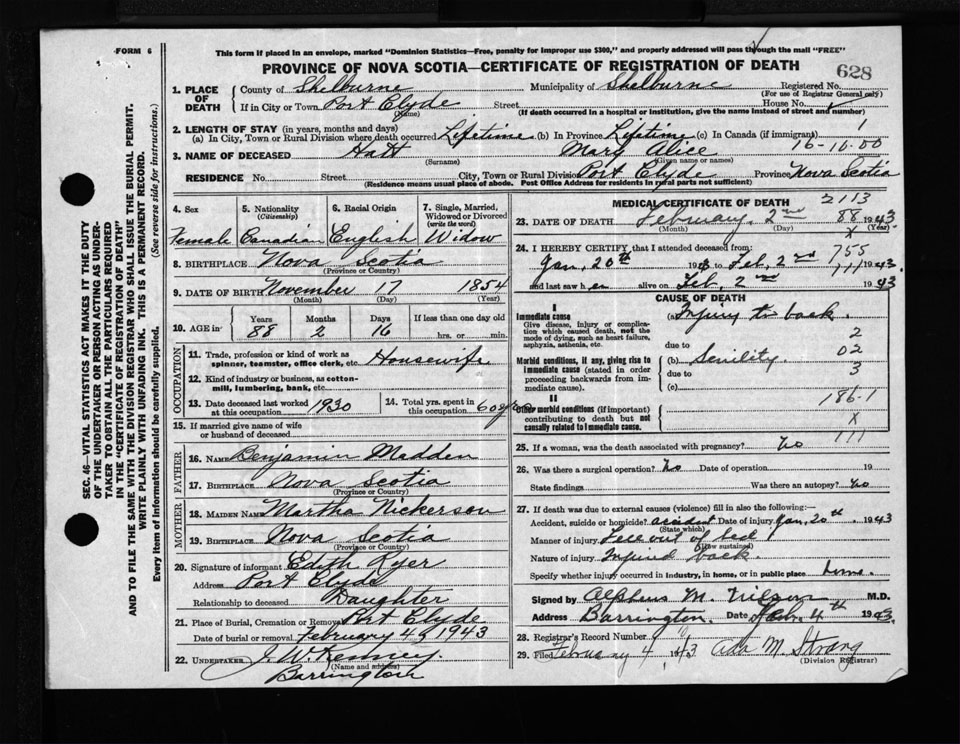 FORM 6
This form if placed in an envelope, marked "Dominion Statistics—Free, penalty for improper use $300," and properly addressed will pass through the mail "FREE"
PROVINCE OF NOVA SCOTIA—CERTIFICATE OF REGISTRATION OF DEATH
628
1. PLACE OF DEATH
County of Shelburne Municipality of Shelburne Registered No.
(For use of Registrar General only)
If in City or Town Port Clyde Street House No.
(Name) (If death occurred in a hospital or institution, give the name instead of street and number)
2. LENGTH OF STAY (in years, months and days)
(a) In City, Town or Rural Division where death occurred Lifetime (b) In Province Lifetime (c) In Canada (if immigrant) 1
16-10-00
3. NAME OF DECEASED Hatt Mary Alice
(Surname) (Given name or names)
RESIDENCE No. Street City, Town or Rural Division Port Clyde Province Nova Scotia
(Residence means usual place of abode. Post Office Address for residents in rural parts not sufficient)
4. Sex 5. Nationality (Citizenship) 6. Racial Origin 7. Single, Married, Widowed or Divorced (write the word)
Female Canadian English Widow
8. BIRTHPLACE Nova Scotia
(Province or Country)
9. DATE OF BIRTH November 17 1854
(Month) (Day) (Year)
10. AGE in Years Months Days If less than one day old
88 2 16 hrs. or min.
OCCUPATION
11. Trade, profession or kind of work as spinner, teamster, office clerk, etc. Housewife
12. Kind of industry or business, as cotton-mill, lumbering, bank, etc.
13. Date deceased last worked at this occupation 1930
14. Total yrs. spent in this occupation 60 yrs
15. If married give name of wife or husband of deceased
FATHER
16. NAME Benjamin Madden
17. BIRTHPLACE Nova Scotia
(Province or Country)
MOTHER
18. MAIDEN NAME Martha Nickerson
19. BIRTHPLACE Nova Scotia
(Province or Country)
20. Signature of informant Edith Ryer
Address Port Clyde
Relationship to deceased Daughter
21. Place of Burial, Cremation or Removal Port Clyde
Date of burial or removal February 4, 1943
22. UNDERTAKER J. W. Kenney
(Name and address)
Barrington
MEDICAL CERTIFICATE OF DEATH
2113
23. DATE OF DEATH February 2nd 88 1943
(Month) (Day) (Year)
X
24. I HEREBY CERTIFY that I attended deceased from:
755
Jan, 20th 1943 to Feb, 2nd 1943
and last saw her alive on Feb, 2nd 1943
CAUSE OF DEATH
I
Immediate cause
Give disease, injury or complication which caused death, not the mode of dying, such as heart failure, asphyxia, asthenia, etc.
(a) Injury to back.
2
due to
Morbid conditions, if any, giving rise to immediate cause (stated in order proceeding backwards from immediate cause).
(b) Senility.
02
due to
3
(c)
186.1
II
Other morbid conditions (if important) contributing to death but not causally related to immediate cause.
X
111
25. If a woman, was the death associated with pregnancy? No
26. Was there a surgical operation? No Date of operation 19
State findings Was there an autopsy? No
27. If death was due to external causes (violence) fill in also the following:—
Accident, suicide or homicide? accident Date of injury Jan, 20th 1943
(State which)
Manner of injury Fell out of bed
(How sustained)
Nature of injury Injured back.
Specify whether injury occurred in industry, in home, or in public place home.
Signed by Alpheus M. M.D.
Address Barrington. Date Feb. 4th 1943.
28. Registrar's Record Number
29. Filed February 4 1943 Ada M. Strang
(Division Registrar)
SEC. 46—VITAL STATISTICS ACT MAKES IT THE DUTY
OF THE UNDERTAKER OR PERSON ACTING AS UNDER-
TAKER TO OBTAIN ALL THE PARTICULARS REQUIRED
IN THE "CERTIFICATE OF REGISTRATION OF DEATH"
AND TO FILE THE SAME WITH THE DIVISION REGISTRAR WHO SHALL ISSUE THE BURIAL PERMIT.
WRITE PLAINLY WITH UNFADING INK. THIS IS A PERMANENT RECORD.
Every item of information should be carefully supplied. (See reverse side for instructions.)